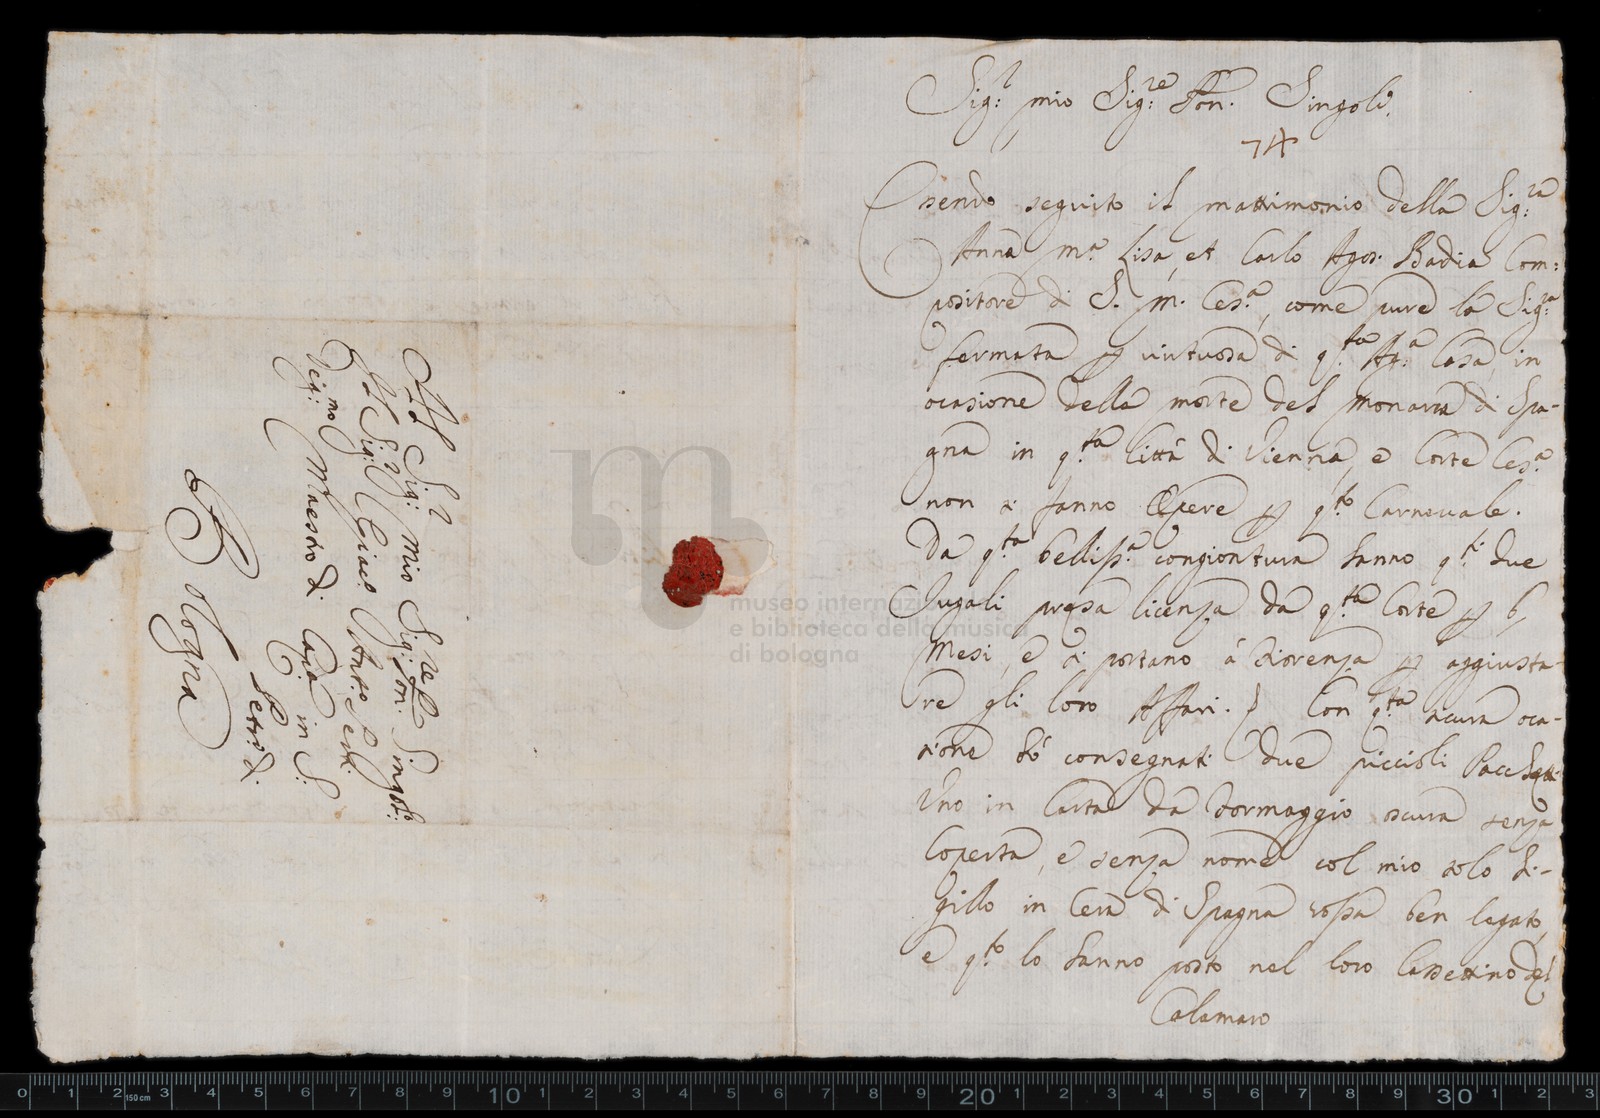 Sig:r mio Sig:re Pron. Singol.o
74
Essendo seguito il mattrimonio della Sig:ra
Anna M.a Lisa, et Carlo Agos. Badia Com:
positore di S. M. Ces.a, come pure la Sig:ra
fermata p virtuosa di q.ta Ag.ma Casa, in
ocasione della morte del Monarca di Spa-
gna in q.ta Città di Vienna, e Corte Ces.a
non si fanno Opere p q.to Carnevale.
Da q.ta belliss.a congiontura hanno q.ti due
Jugali presa licenza da q.ta Corte p 6
Mesi, e si portano à Fiorenza p aggiusta-
re gli loro Affari. Con q.ta sicura oca-
sione hò consegnati due piccioli Pacchetti
Uno in Carta da Formaggio oscura senza
Coperta, e senza nome col mio solo Si-
gillo in Cera di Spagna rossa ben legato,
e q.to lo hanno posto nel loro Cassettino del
Calamaro
All Sig:r mio Sig:re Pron. Singol:o
Il Sig:r Giac.o Ant.o Perti
Deg:mo Maestro di Cap.a in S:
Petro di
Bologna
museo internazionale
e biblioteca della musica
di bologna
0 1 2 3 4 5 6 7 8 9 10 1 2 3 4 5 6 7 8 9 20 1 2 3 4 5 6 7 8 9 30 1 2 3
150 cm